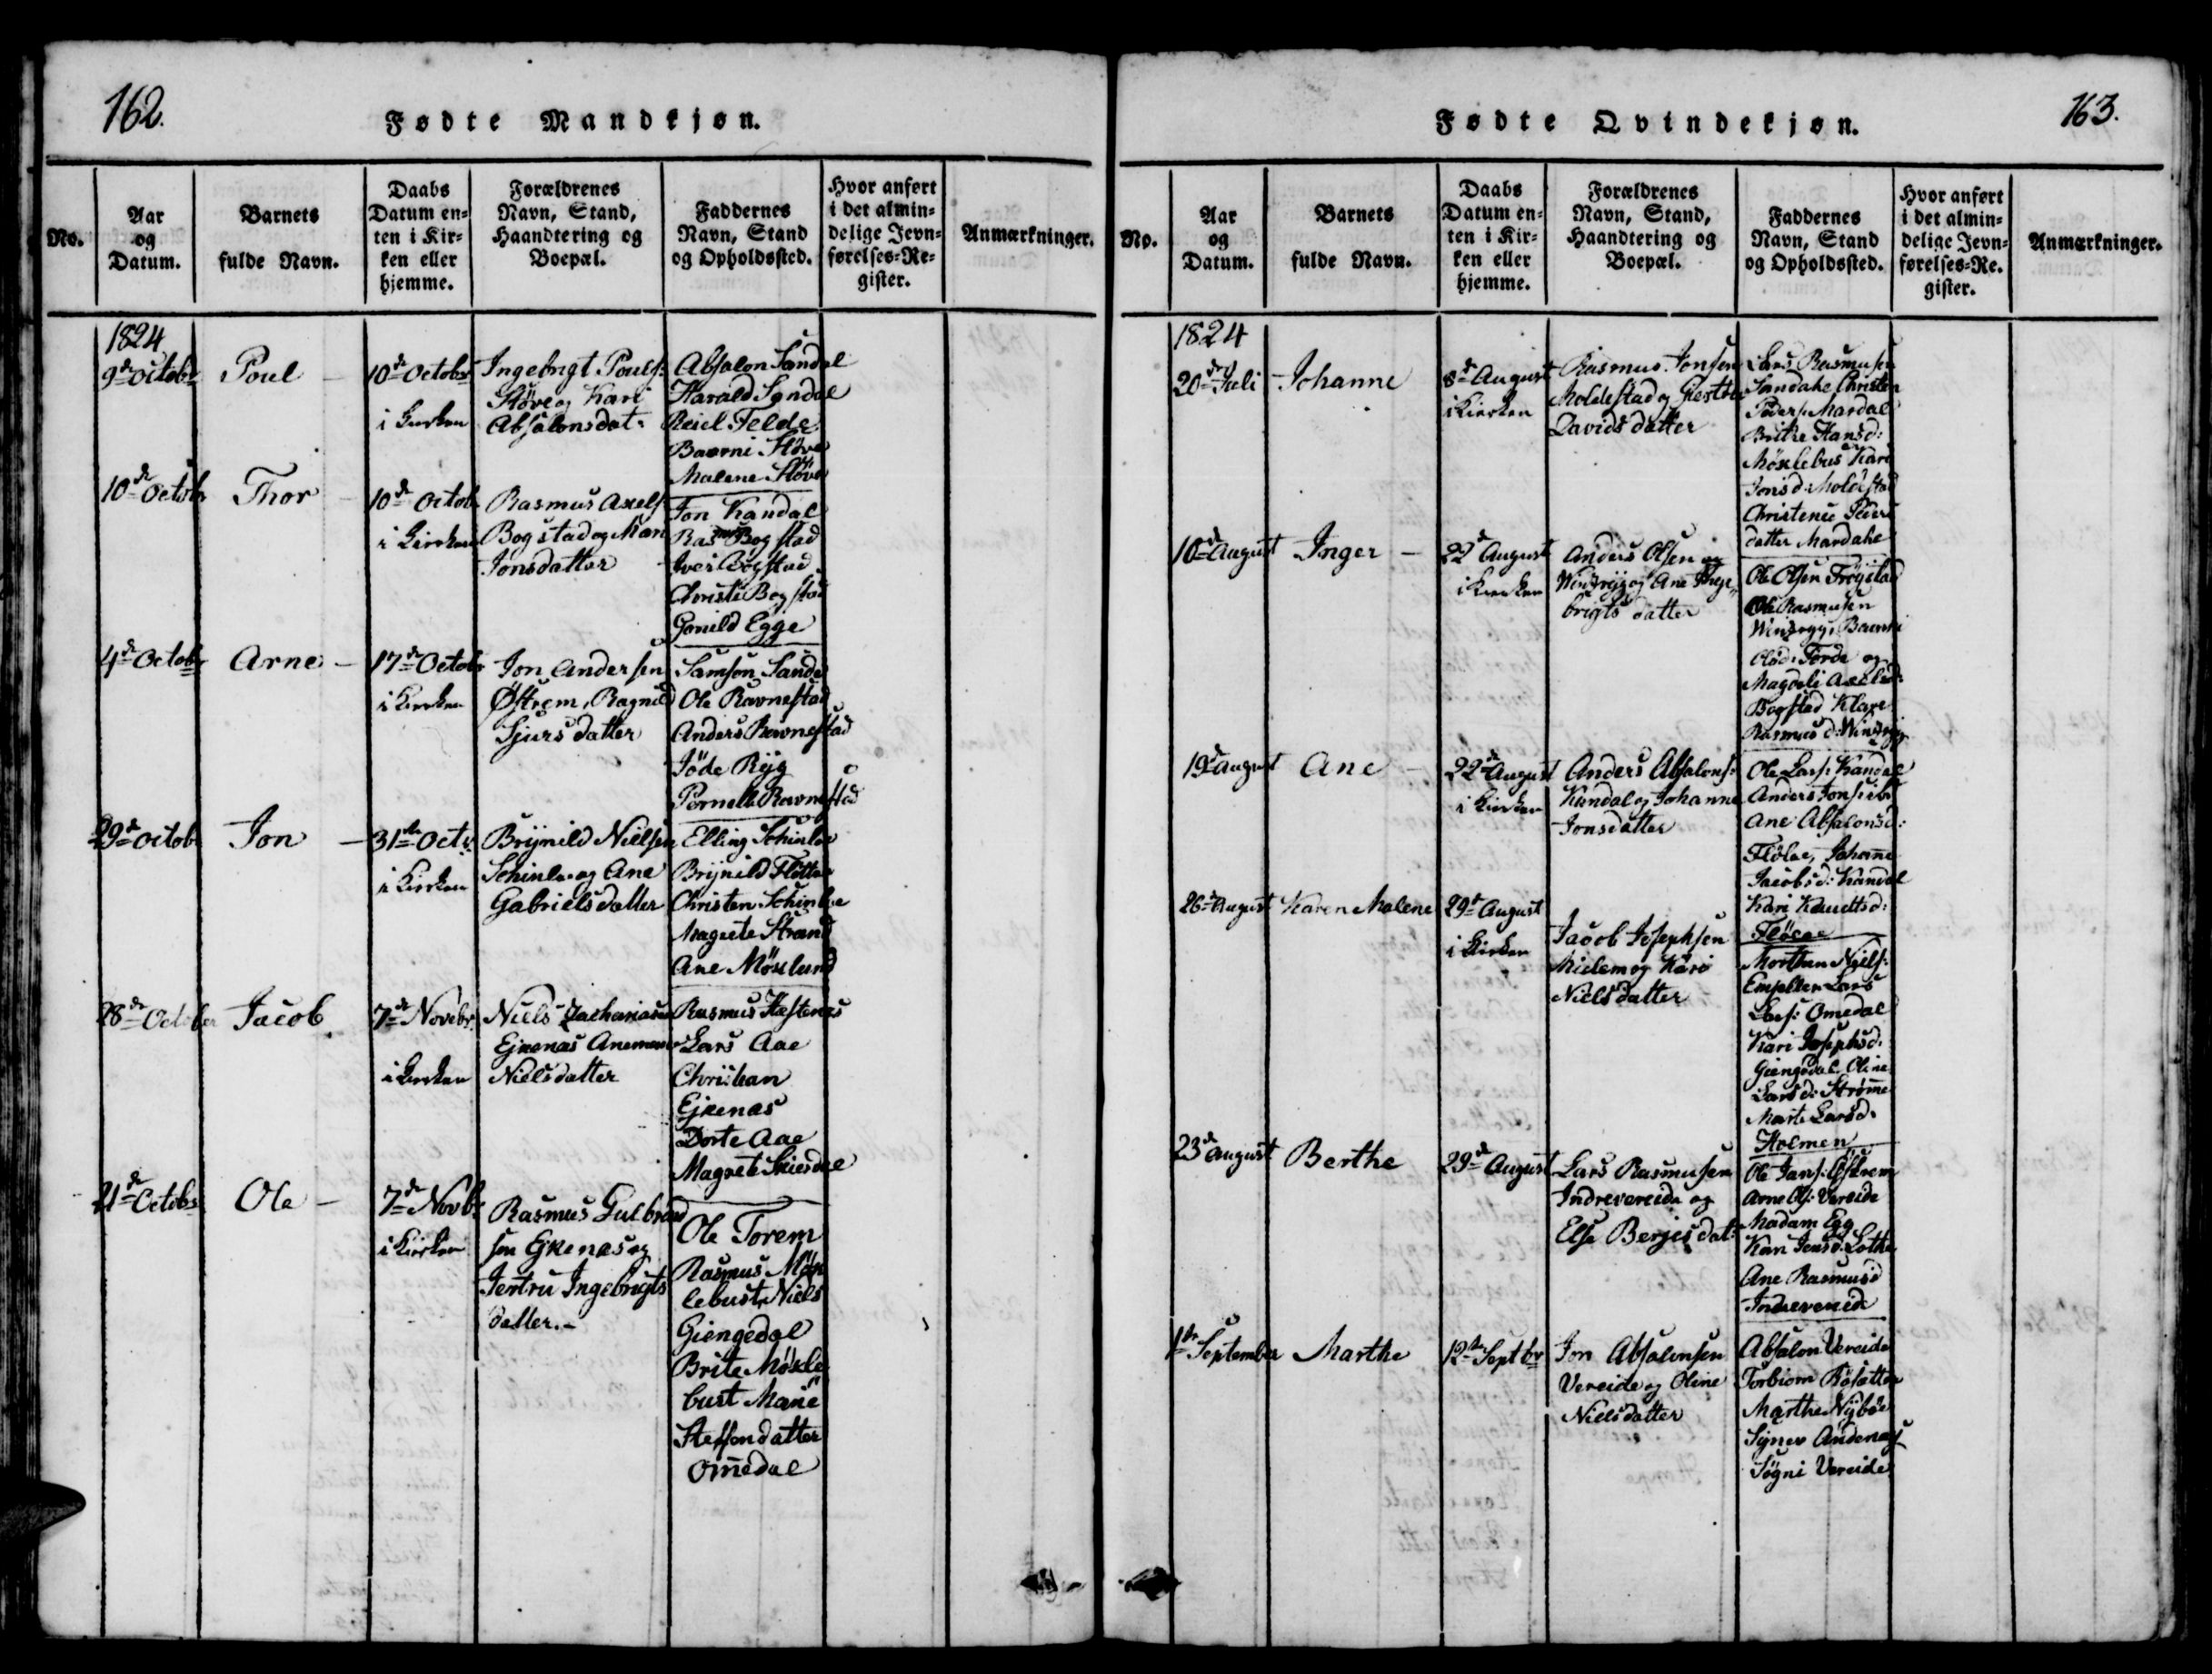 162.
Fødte Mandkjøn.
No.
Aar
og
Datum.
Barnets
fulde Navn.
Daabs
Datum en-
ten i Kir-
ken eller
hjemme.
Forældrenes
Navn, Stand,
Haandtering og
Boepæl.
Faddernes
Navn, Stand
og Opholdssted.
Hvor anført
i det almin-
delige Jevn-
førelses-Re-
gister.
Anmærkninger.
1824
9de Octobr
Poul
10de Octobr
i Kirken
Ingebrigt Pouls:
Støve og Kari
Absalonsdat:
Absalon Sandal
Harald Sandal
Reiel Felde
Baarni Støve
Malene Støve
10de Octobr
Thor
10de Octob
i Kirken
Rasmus Axels
Bogstad og Mari
Jonsdatter
Jon Kandal
Rasmus Bogstad
Iver Bogstad
Christi Bogstad
Gonild Egge
4de Octobr
Arne
17de Octobr
i Kirken
Jon Andersen
Østrem, Ragnild
Sjursdatter
Samson Sande
Ole Ravnestad
Anders Ravnestad
Jøde Ryg
Pernelle Ravnestad
29de Octobr
Jon
31te Octr
i Kirken
Brynild Nielsen
Schinlo og Ane
Gabrielsdatter
Elling Schinlo
Brynild Flotten
Christen Schinloe
Magrete Strand
Ane Møslund
28de October
Jacob
7de Novebr
i Kirken
Niels Zachariasen
Ejkenas Anemarie
Nielsdatter
Rasmus Hestenes
Lars Aae
Christian
Ejkenas
Dorte Aae
Magrete Skiesdal
21de Octobr
Ole
7de Novbr
i Kirken
Rasmus Gulbrand
sen Ejkenas og
Jertru Ingebrigts
datter.
Ole Torem
Rasmus Møk
lebust, Niels
Giengedal
Brite Møkle
bust Marie
Steffendatter
Ommedal
163.
Fødte Qvindekjøn.
No.
Aar
og
Datum.
Barnets
fulde Navn.
Daabs
Datum en-
ten i Kir-
ken eller
hjemme.
Forældrenes
Navn, Stand,
Haandtering og
Boepæl.
Faddernes
Navn, Stand
og Opholdssted.
Hvor anført
i det almin-
delige Jevn-
førelses-Re-
gister.
Anmærkninger.
1824
20de Juli
Johanne
8de August
i Kirken
Rasmus Jonsen
Moldestad og Giertru
Davids datter
Lars Rasmusen
Sandahe Christen
Peders: Mardal
Brithe Hansd:
Møklebus Kari
Jonsd: Moldestad
Christense Peders
datter Mardahe
10de August
Inger
22de August
i Kirken
Anders Olsen
og Ane Inge
brigts datter
Ole Olsen Frøystad
Ole Rasmusen
Baarni
Olsd: Førde og
Magdeli Axelsd:
Bogstad Klare
Rasmusd:
19de August
Ane
22de August
i Kirken
Anders Absalons:
Kandal og Johanne
Jonsdatter
Ole Lars: Kandal
Anders Jons: ibd
Ane Absalonsd:
Fløloe, Johanne
Jacobsd: Kandal
Kari Knudtsd:
Fløloe
26de August
Karen Malene
29de August
i Kirken
Jacob Josephsen
Mielem og Kari
Nielsdatter
Morthen Niels:
Lars
Lars: Omedal
Kari Josephsd:
Giengedal Oline
Larsd: Strømme
Marte Larsd:
Holmen
23de August
Berthe
29de August
Lars Rasmusen
Indrevereide og
Else Berjesdat:
Ole Jans: Østrem
Arne Ols: Vereide
Madam Egg
Kari Jensd: Lothe
Ane Rasmusd
Indrevereide
1te September
Marthe
12te Septbr
Jon Absalonsen
Vereide og Oline
Nielsdatter
Absalon Vereide
Torbiorn Røsætter
Marthe Nybøe
Signe Andenæs
Søgni Vereide